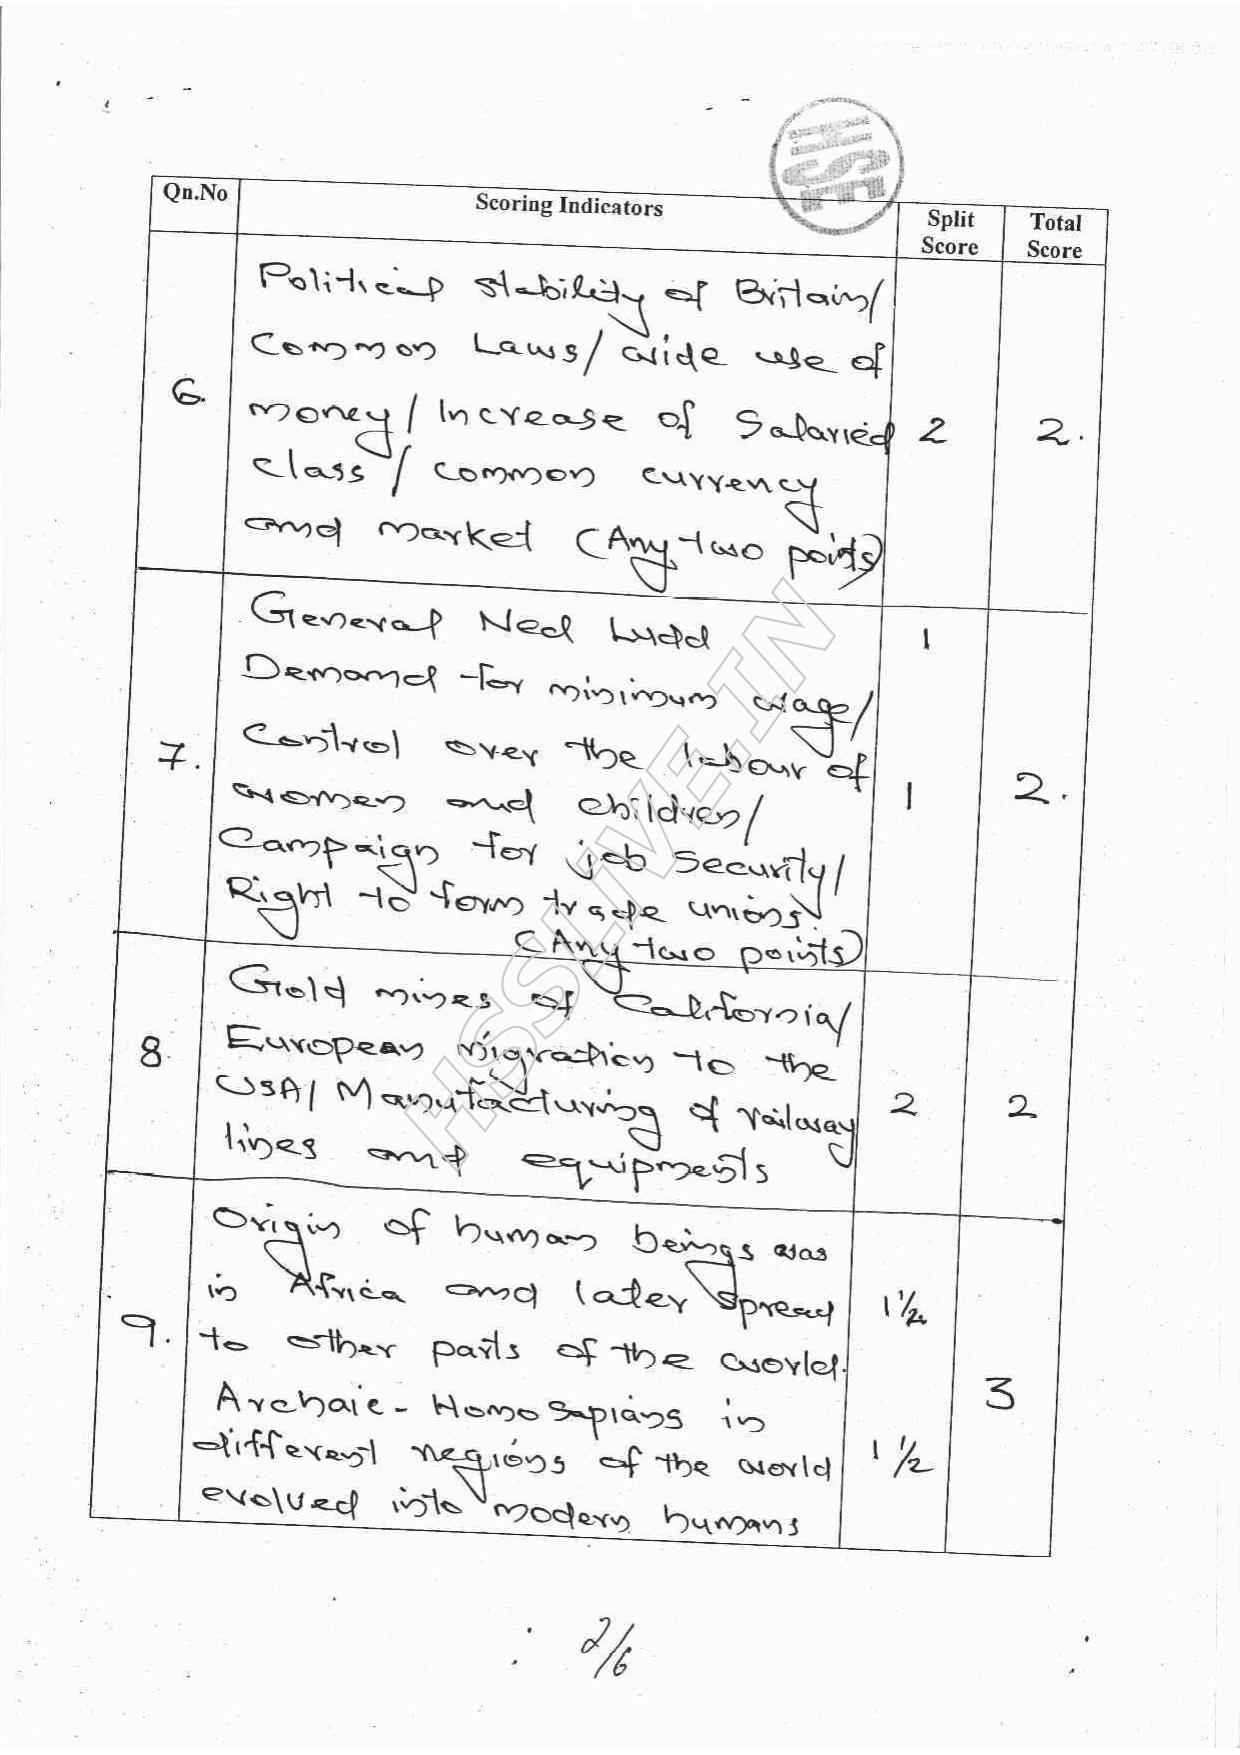 HSE
Qn.No Scoring Indicators Split Score Total Score
Political stability of Britain/
Common Laws/ wide use of
6. money/ Increase of Salaried 2 2.
class / common currency
and market (Any two points)
General Ned Ludd 1
Demand for minimum wage/
7. Control over the labour of 2.
women and children/ 1
Campaign for job security/
Right to form trade unions.
(Any two points)
Gold mines of California/
8. European migration to the
USA/ Manufacturing of railway 2 2
lines and equipments
Origin of human beings was
in Africa and later spread 1½
9. to other parts of the world. 3
Archaic - Homo sapians in
different regions of the world 1½
evolved into modern humans
2/6
HSSLIVE.IN